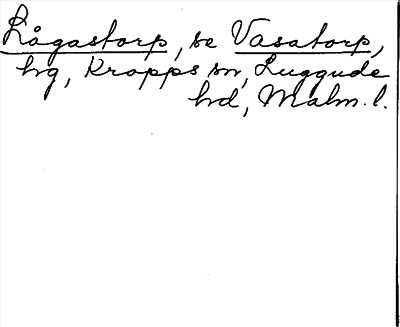 Lågastorp, se Vasatorp,
hg, Kropps sn, Luggude
hd, Malm. l.